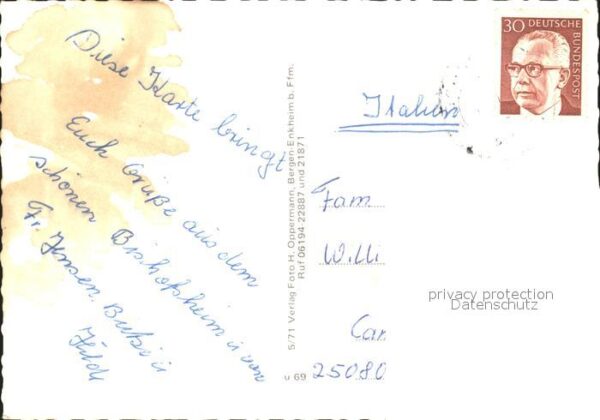 Diese Karte bringt
Euch Grüße aus dem
schönen Bischofsheim u. von
Fr. Jensen.
5/71 Verlag Foto H. Oppermann, Bergen-Enkheim b. Ffm.
Ruf 06194-22887 und 21871
u 69
30 DEUTSCHE
BUNDESPOST
Italien
Fam
Willi
privacy protection
Datenschutz
Car
25080